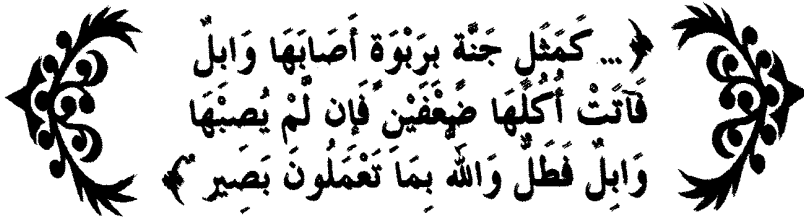 ﴿... كَمَثَلِ جَنَّةٍ بِرَبْوَةٍ أَصَابَهَا وَابِلٌ
فَآتَتْ أُكُلَهَا ضِعْفَيْنِ فَإِن لَّمْ يُصِبْهَا
وَابِلٌ فَطَلٌّ وَاللَّهُ بِمَا تَعْمَلُونَ بَصِيرٌ﴾